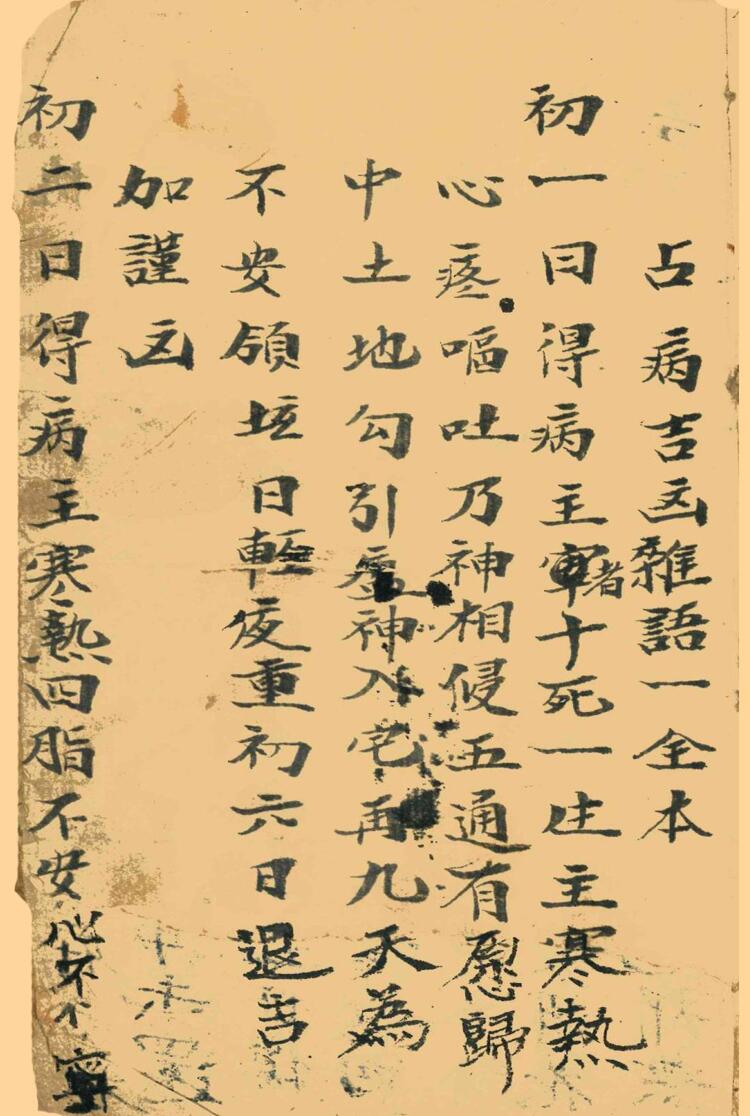 占病吉凶雜語一全本
初一日得病主軍者十死一生主寒熱
心疼嘔吐乃神相侵五通有愿歸
中土地勾引虛神入宅再九天為
不安領垓日輕夜重初六日退吉
加謹凶
初二日得病主寒熱四脂不安心怀不寧